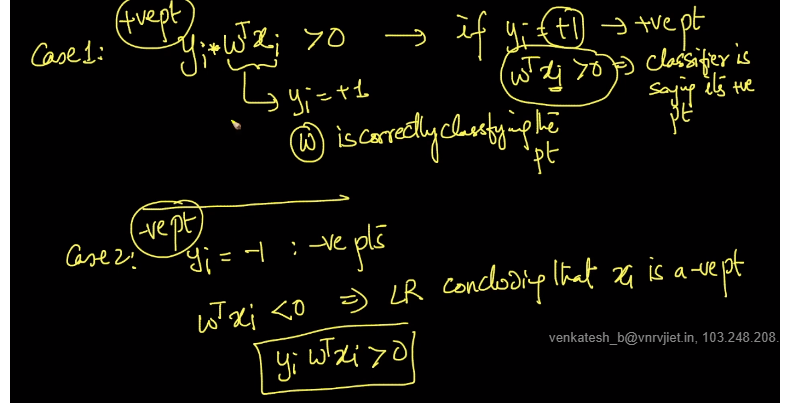 +ve pt
Case 1: yi * wᵀxi > 0 → if yi = +1 → +ve pt
wᵀxi > 0 ⇒ classifier is
saying its +ve
pt
→ yi = +1
w is correctly classifying the
pt
-ve pt
Case 2: yi = -1 : -ve pts
wᵀxi < 0 ⇒ LR concluding that xi is a -ve pt
yi wᵀxi > 0
venkatesh_b@vnrvjiet.in, 103.248.208.